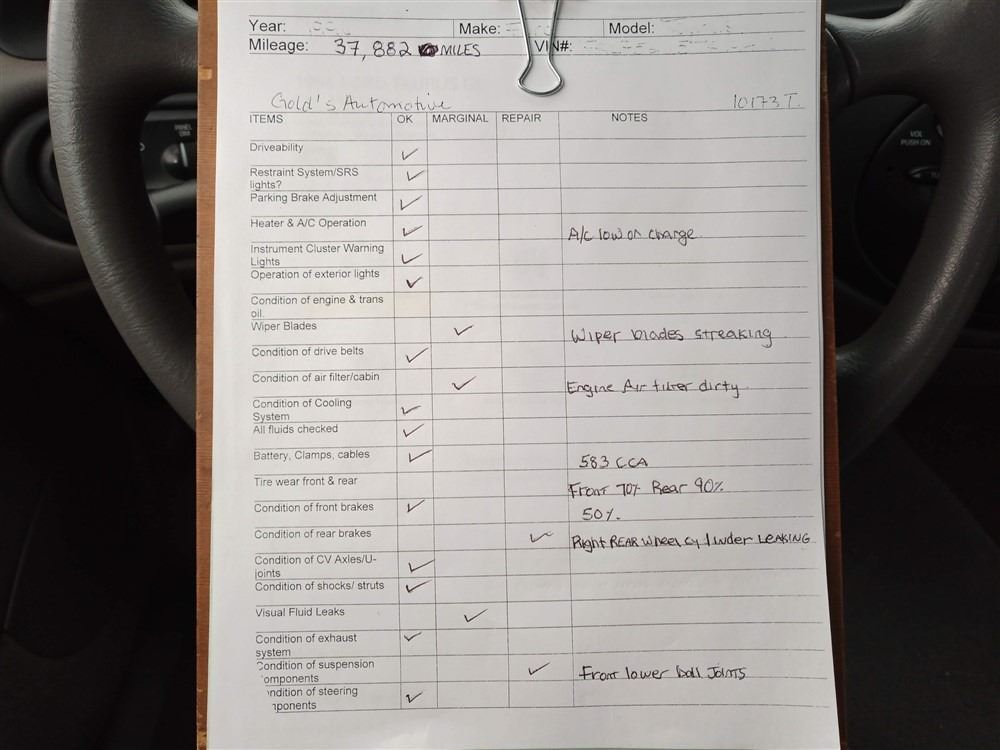 Year: Make: Model:
Mileage: 37,882 MILES VIN#:
Gold's Automotive 10173 T.
ITEMS OK MARGINAL REPAIR NOTES
Driveability ✓
Restraint System/SRS ✓
lights?
Parking Brake Adjustment ✓
Heater & A/C Operation ✓ A/c low on charge
Instrument Cluster Warning ✓
Lights
Operation of exterior lights ✓
Condition of engine & trans
oil.
Wiper Blades ✓ Wiper blades streaking
Condition of drive belts ✓
Condition of air filter/cabin ✓ Engine Air filter dirty
Condition of Cooling ✓
System
All fluids checked ✓
Battery, Clamps, cables ✓ 583 CCA
Tire wear front & rear Front 70% Rear 90%
Condition of front brakes ✓ 50%.
Condition of rear brakes ✓ Right REAR wheel cylinder LEAKING
Condition of CV Axles/U- ✓
joints
Condition of shocks/ struts ✓
Visual Fluid Leaks ✓
Condition of exhaust ✓
system
Condition of suspension ✓ Front lower ball Joints
omponents
ndition of steering ✓
ponents
PANEL
DIM
VOL
PUSH ON